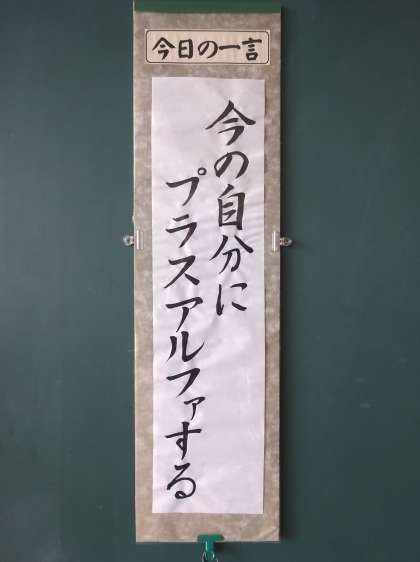 今日の一言
今の自分に
プラスアルファする